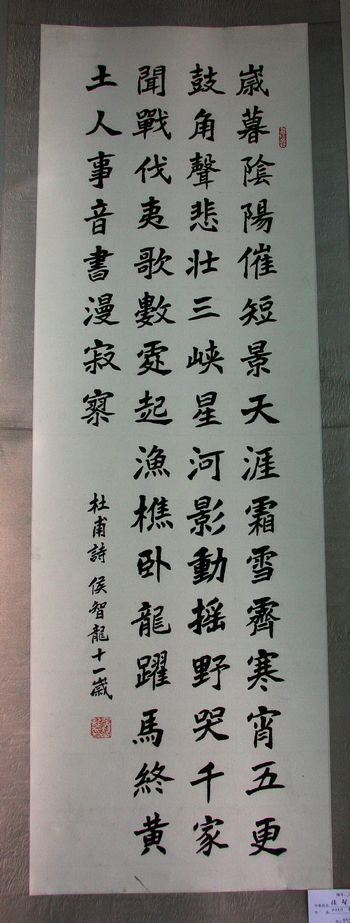 歲暮陰陽催短景天涯霜雪霽寒宵五更
鼓角聲悲壯三峽星河影動搖野哭千家
聞戰伐夷歌數處起漁樵臥龍躍馬終黃
土人事音書漫寂寥
杜甫詩侯智龍十一歲